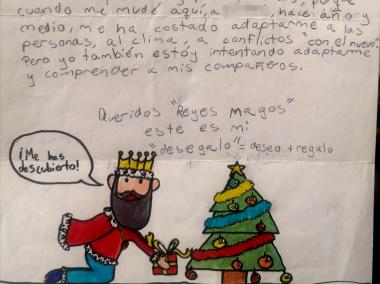 cuando me mudé aquí, a hace año y
medio, me ha costado adaptarme a las
personas, al clima, a conflictos "con el nuevo".
Pero yo también estoy intentando adaptarme
y comprender a mis compañeros.
Queridos "Reyes Magos"
este es mi
"desegalo" = deseo + regalo
¡Me has
descubierto!